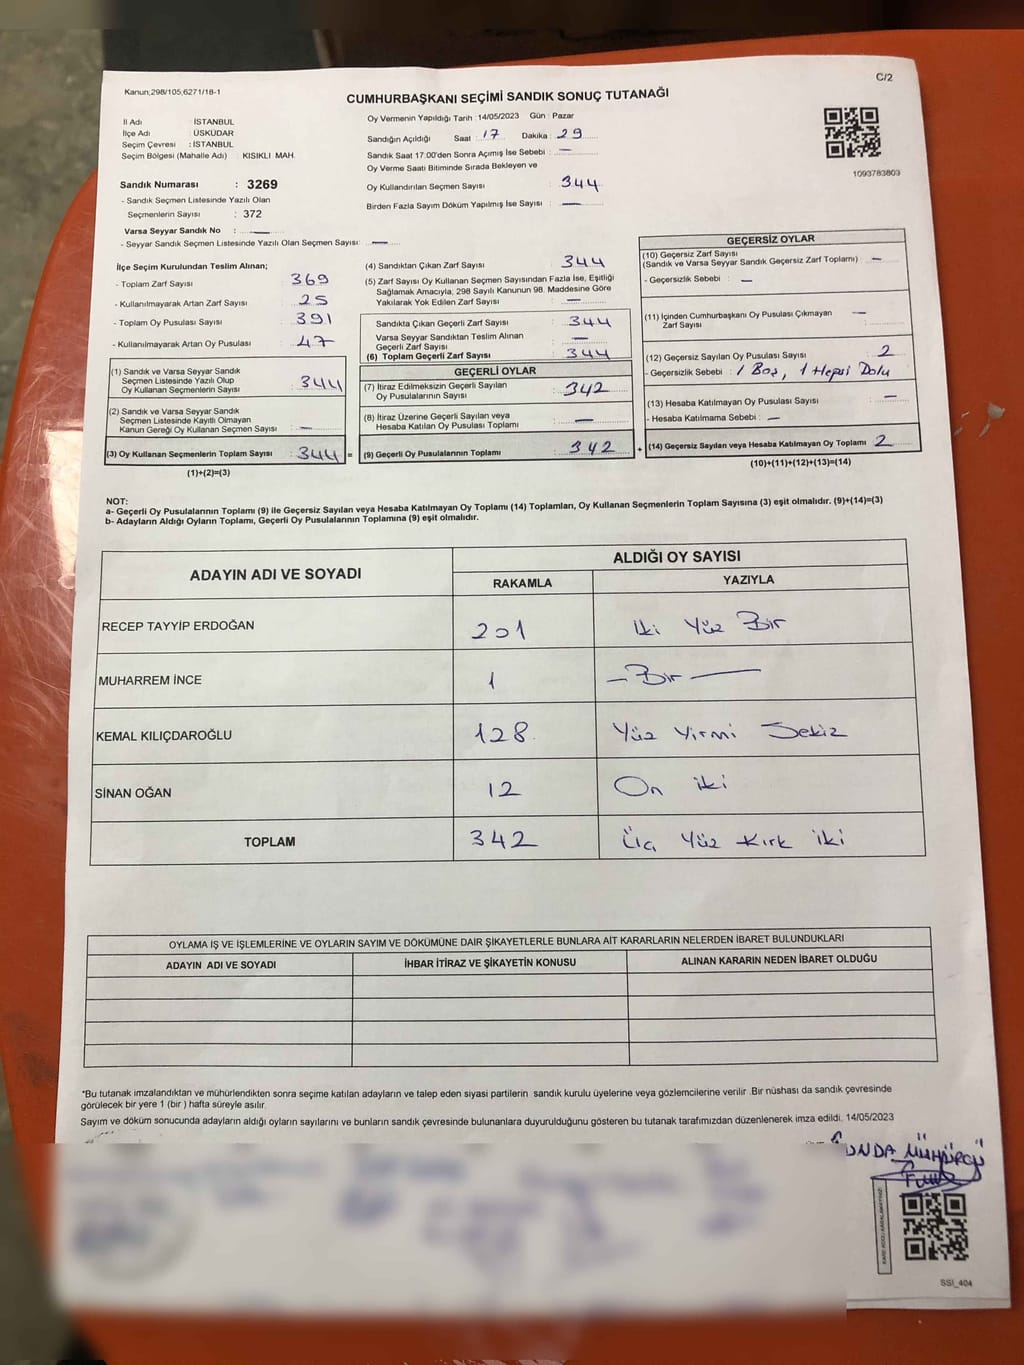 Kanun;298/105,6271/18-1
C/2
CUMHURBAŞKANI SEÇİMİ SANDIK SONUÇ TUTANAĞI
İl Adı : İSTANBUL
İlçe Adı : ÜSKÜDAR
Seçim Çevresi : İSTANBUL
Seçim Bölgesi (Mahalle Adı) : KISIKLI MAH.
Sandık Numarası : 3269
- Sandık Seçmen Listesinde Yazılı Olan
Seçmenlerin Sayısı : 372
Varsa Seyyar Sandık No : —
- Seyyar Sandık Seçmen Listesinde Yazılı Olan Seçmen Sayısı: —
Oy Vermenin Yapıldığı Tarih : 14/05/2023 Gün : Pazar
Sandığın Açıldığı Saat : 17 Dakika : 29
Sandık Saat 17:00'den Sonra Açımış İse Sebebi : —
Oy Verme Saati Bitiminde Sırada Bekleyen ve
Oy Kullandırılan Seçmen Sayısı : 344
Birden Fazla Sayım Döküm Yapılmış İse Sayısı : —
1093783803
İlçe Seçim Kurulundan Teslim Alınan;
- Toplam Zarf Sayısı : 369
- Kullanılmayarak Artan Zarf Sayısı : 25
- Toplam Oy Pusulası Sayısı : 391
- Kullanılmayarak Artan Oy Pusulası : 47
(1) Sandık ve Varsa Seyyar Sandık
Seçmen Listesinde Yazılı Olup
Oy Kullanan Seçmenlerin Sayısı : 344
(2) Sandık ve Varsa Seyyar Sandık
Seçmen Listesinde Kayıtlı Olmayan
Kanun Gereği Oy Kullanan Seçmen Sayısı : —
(3) Oy Kullanan Seçmenlerin Toplam Sayısı : 344 =
(1)+(2)=(3)
(4) Sandıktan Çıkan Zarf Sayısı : 344
(5) Zarf Sayısı Oy Kullanan Seçmen Sayısından Fazla İse, Eşitliği
Sağlamak Amacıyla; 298 Sayılı Kanunun 98. Maddesine Göre
Yakılarak Yok Edilen Zarf Sayısı : —
Sandıkta Çıkan Geçerli Zarf Sayısı : 344
Varsa Seyyar Sandıktan Teslim Alınan
Geçerli Zarf Sayısı : —
(6) Toplam Geçerli Zarf Sayısı : 344
GEÇERLİ OYLAR
(7) İtiraz Edilmeksizin Geçerli Sayılan
Oy Pusulasının Sayısı : 342
(8) İtiraz Üzerine Geçerli Sayılan veya
Hesaba Katılan Oy Pusulası Toplamı : —
(9) Geçerli Oy Pusulalarının Toplamı : 342 +
GEÇERSİZ OYLAR
(10) Geçersiz Zarf Sayısı
(Sandık ve Varsa Seyyar Sandık Geçersiz Zarf Toplamı) : —
- Geçersizlik Sebebi : —
(11) İçinden Cumhurbaşkanı Oy Pusulası Çıkmayan
Zarf Sayısı : —
(12) Geçersiz Sayılan Oy Pusulası Sayısı : 2
- Geçersizlik Sebebi : 1 Boş, 1 Hepsi Dolu
(13) Hesaba Katılmayan Oy Pusulası Sayısı : —
- Hesaba Katılmama Sebebi : —
(14) Geçersiz Sayılan veya Hesaba Katılmayan Oy Toplamı : 2
(10)+(11)+(12)+(13)=(14)
NOT:
a- Geçerli Oy Pusulalarının Toplamı (9) ile Geçersiz Sayılan veya Hesaba Katılmayan Oy Toplamı (14) Toplamları, Oy Kullanan Seçmenlerin Toplam Sayısına (3) eşit olmalıdır. (9)+(14)=(3)
b- Adayların Aldığı Oyların Toplamı, Geçerli Oy Pusulalarının Toplamına (9) eşit olmalıdır.
ADAYIN ADI VE SOYADI
ALDIĞI OY SAYISI
RAKAMLA YAZIYLA
RECEP TAYYİP ERDOĞAN 201 İki Yüz Bir
MUHARREM İNCE 1 – Bir —
KEMAL KILIÇDAROĞLU 128 Yüz Yirmi Sekiz
SİNAN OĞAN 12 On iki
TOPLAM 342 Üç Yüz Kırk iki
OYLAMA İŞ VE İŞLEMLERİNE VE OYLARIN SAYIM VE DÖKÜMÜNE DAİR ŞİKAYETLERLE BUNLARA AİT KARARLARIN NELERDEN İBARET BULUNDUKLARI
ADAYIN ADI VE SOYADI İHBAR İTİRAZ VE ŞİKAYETİN KONUSU ALINAN KARARIN NEDEN İBARET OLDUĞU
*Bu tutanak imzalandıktan ve mühürlendikten sonra seçime katılan adayların ve talep eden siyasi partilerin sandık kurulu üyelerine veya gözlemcilerine verilir .Bir nüshası da sandık çevresinde
görülecek bir yere 1 (bir ) hafta süreyle asılır.
Sayım ve döküm sonucunda adayların aldığı oyların sayılarını ve bunların sandık çevresinde bulunanlara duyurulduğunu gösteren bu tutanak tarafımızdan düzenlenerek imza edildi. 14/05/2023
SSI_404